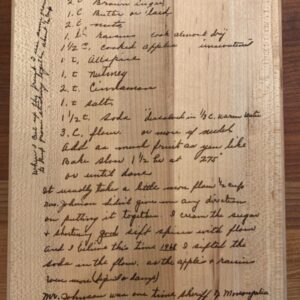 2 C Brown sugar
1 C. Butter or lard
2 C. nuts
1 lb raisins cook almost dry
1 1/2 C. cooked apples unsweetened
1 t. Allspice
1 t. Nutmeg
2 t. Cinnamon
1 t. salt
1 1/2 t. Soda dissolved in 1/3 C. warm water
3 C. flour. or more if needed
Add as much fruit as you like
Bake slow 1 1/2 hr at 275
or until done
It usually take a little more flour 1/2 cup
Mrs. Johnson didn't give me any direction
on putting it together. I cream the sugar
& shortning good sift spices with flour
and I believe this time 1968 I sifted the
soda in the flour. as the apples & raisins
were more
Mr. Johnson was one time sheriff of